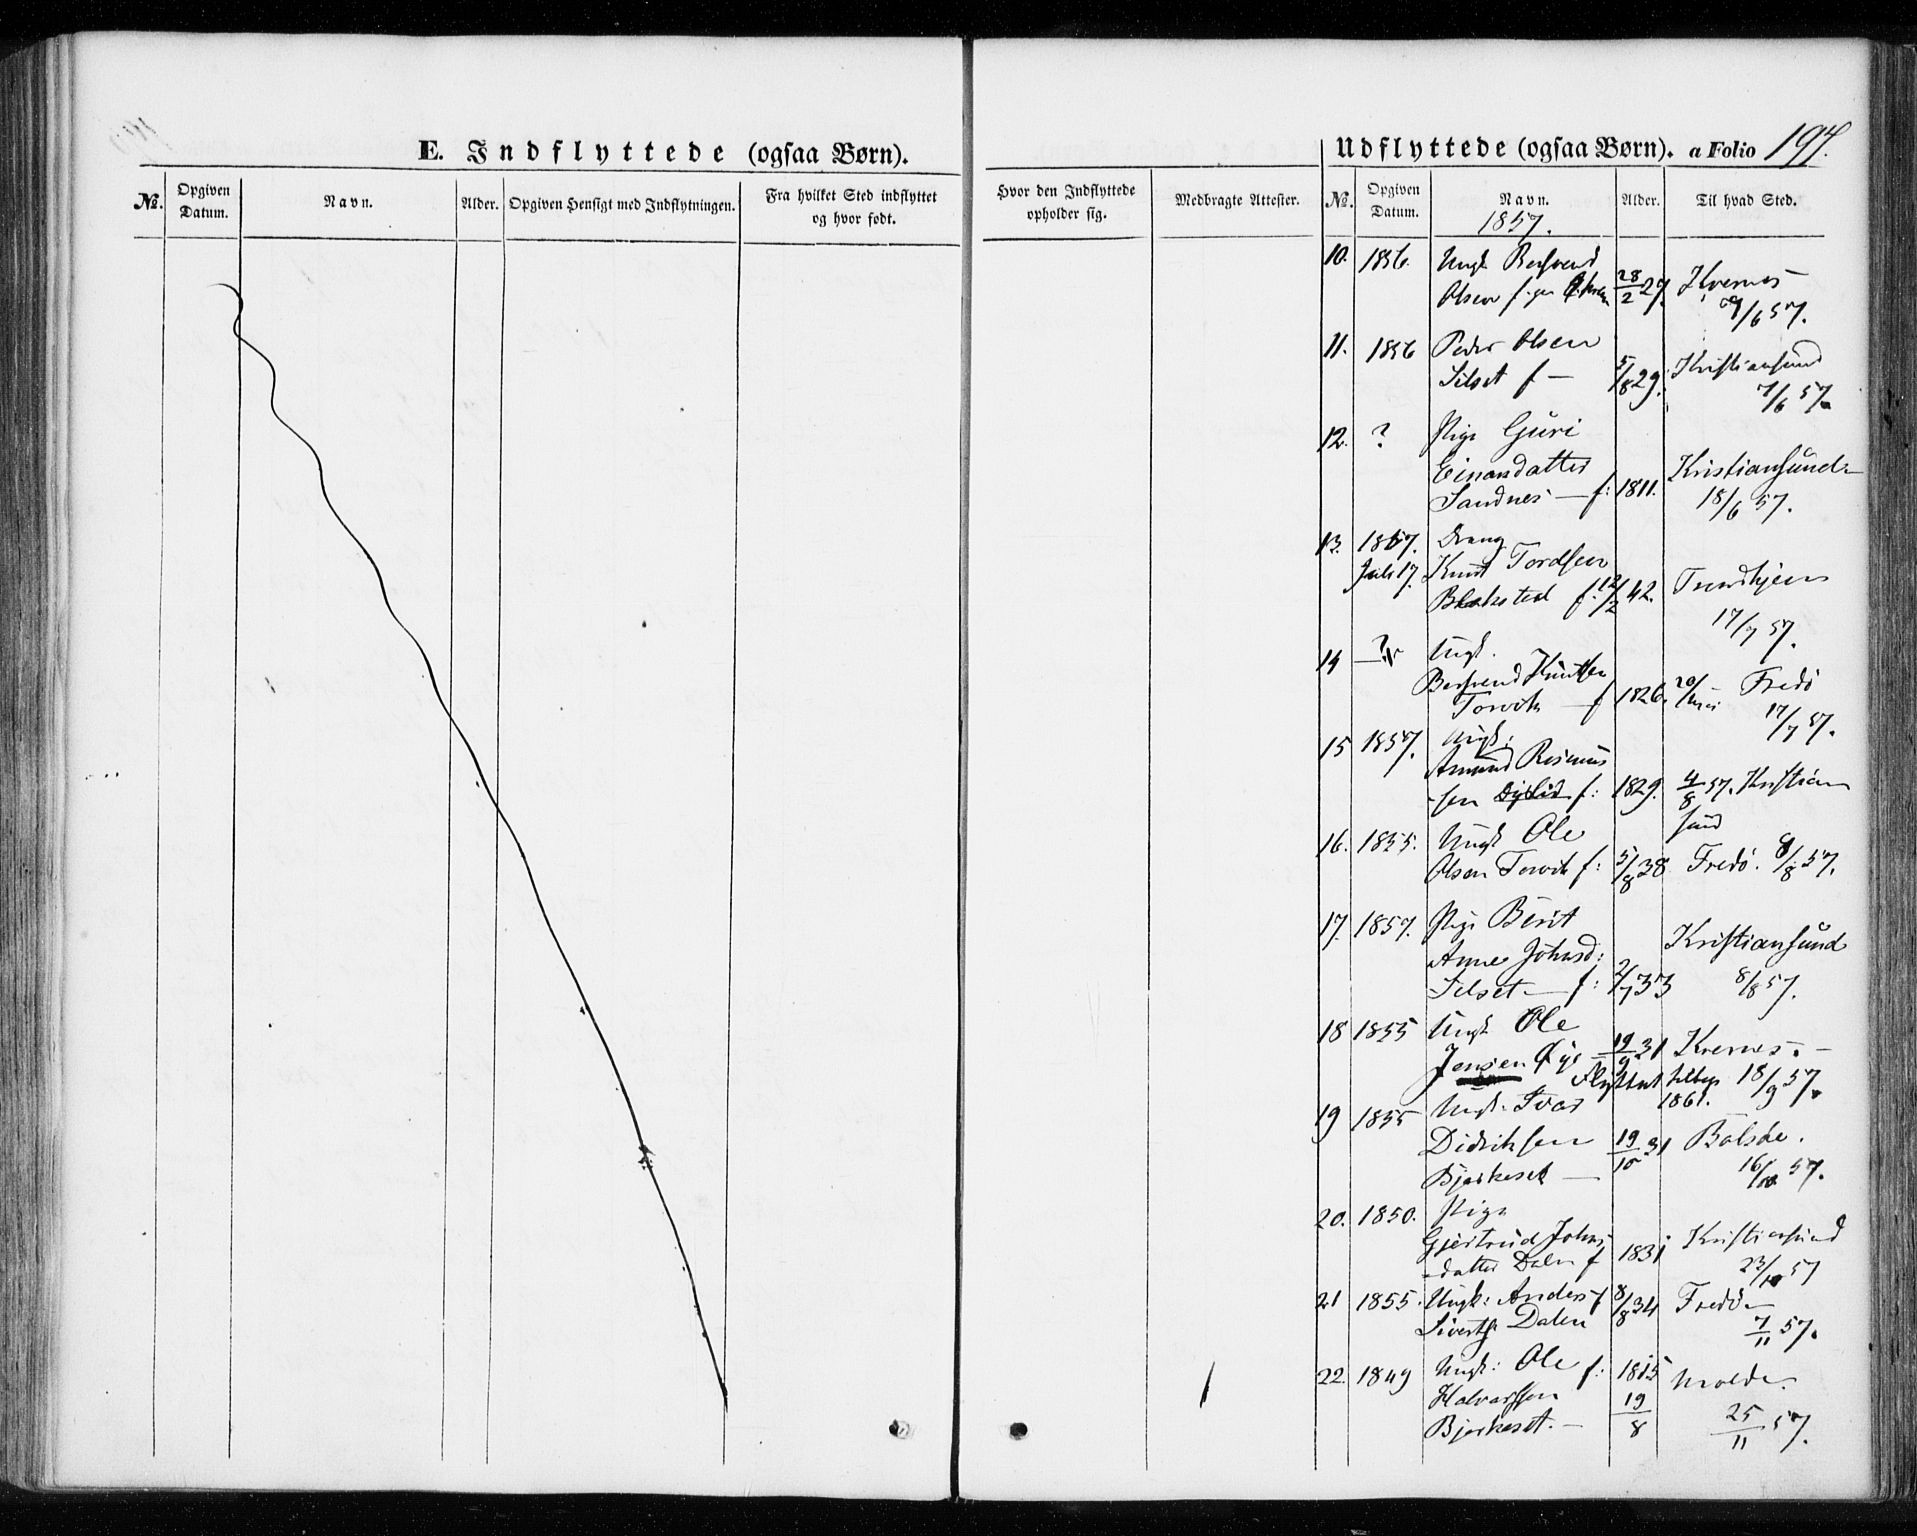 E. Indflyttede (ogsaa Børn).
No.
Opgiven Datum.
Navn.
Alder.
Opgiven Hensigt med Indflytningen.
Fra hvilket Sted indflyttet og hvor født.
Udflyttede (ogsaa Børn). a Folio 194.
Hvor den Indflyttede opholder sig.
Medbragte Attester.
No.
Opgiven Datum.
Navn.
Alder.
Til hvad Sted.
1857.
10. 1856. Ungk
Olsen f. 28/2 27. Kvernes
9/6 57.
11. 1856 Peder Olsen
Silset f — 5/8 29. Kristiansund
7/6 57.
12. ? Pige Guri
Einarsdatter
Sandnes — f: 1811. Kristiansund
18/6 57.
13. 1857. Dreng
Juli 17. Knut Tordsen
f. 12/2 42. Trondhjem
17/7 57.
14 ? Ungk.
Knutsen
Torvik — f 1826. 20/ Fredö
17/7 57.
15 1857. Ungk:
Amund Rasmus
-sen f: 1829. 4/8 57. Kristian
sund
16. 1855. Ungk Ole
Olsen Torvik f: 5/8 38 Fredö. 8/8 57.
17. 1857. Pige Berit
Anne Johnsd:
Silset — f: 2/7 33 Kristiansund
8/8 57.
18 1855 Ungk Ole
Jensen Øye 19/9 31 Kvernes. —
Flyttet tilbage 18/9 57.
1861.
19 1855 Ungk. Ivar
Didriksen 19/10 31 Bolsöe.
Bjerkeset — 16/10 57.
20. 1850. Pige
Gjertrud Johns
-datter Dalen f 1831 Kristiansund
23/10 57
21 1855. Ungk: Anders f 8/8 34 Fredö
Sivertsen Dalen 7/11 57.
22. 1849 Ungk: Ole f: 1815 Molde.
Halvorssen 19/8
Bjerkeset. — 25/11 57.